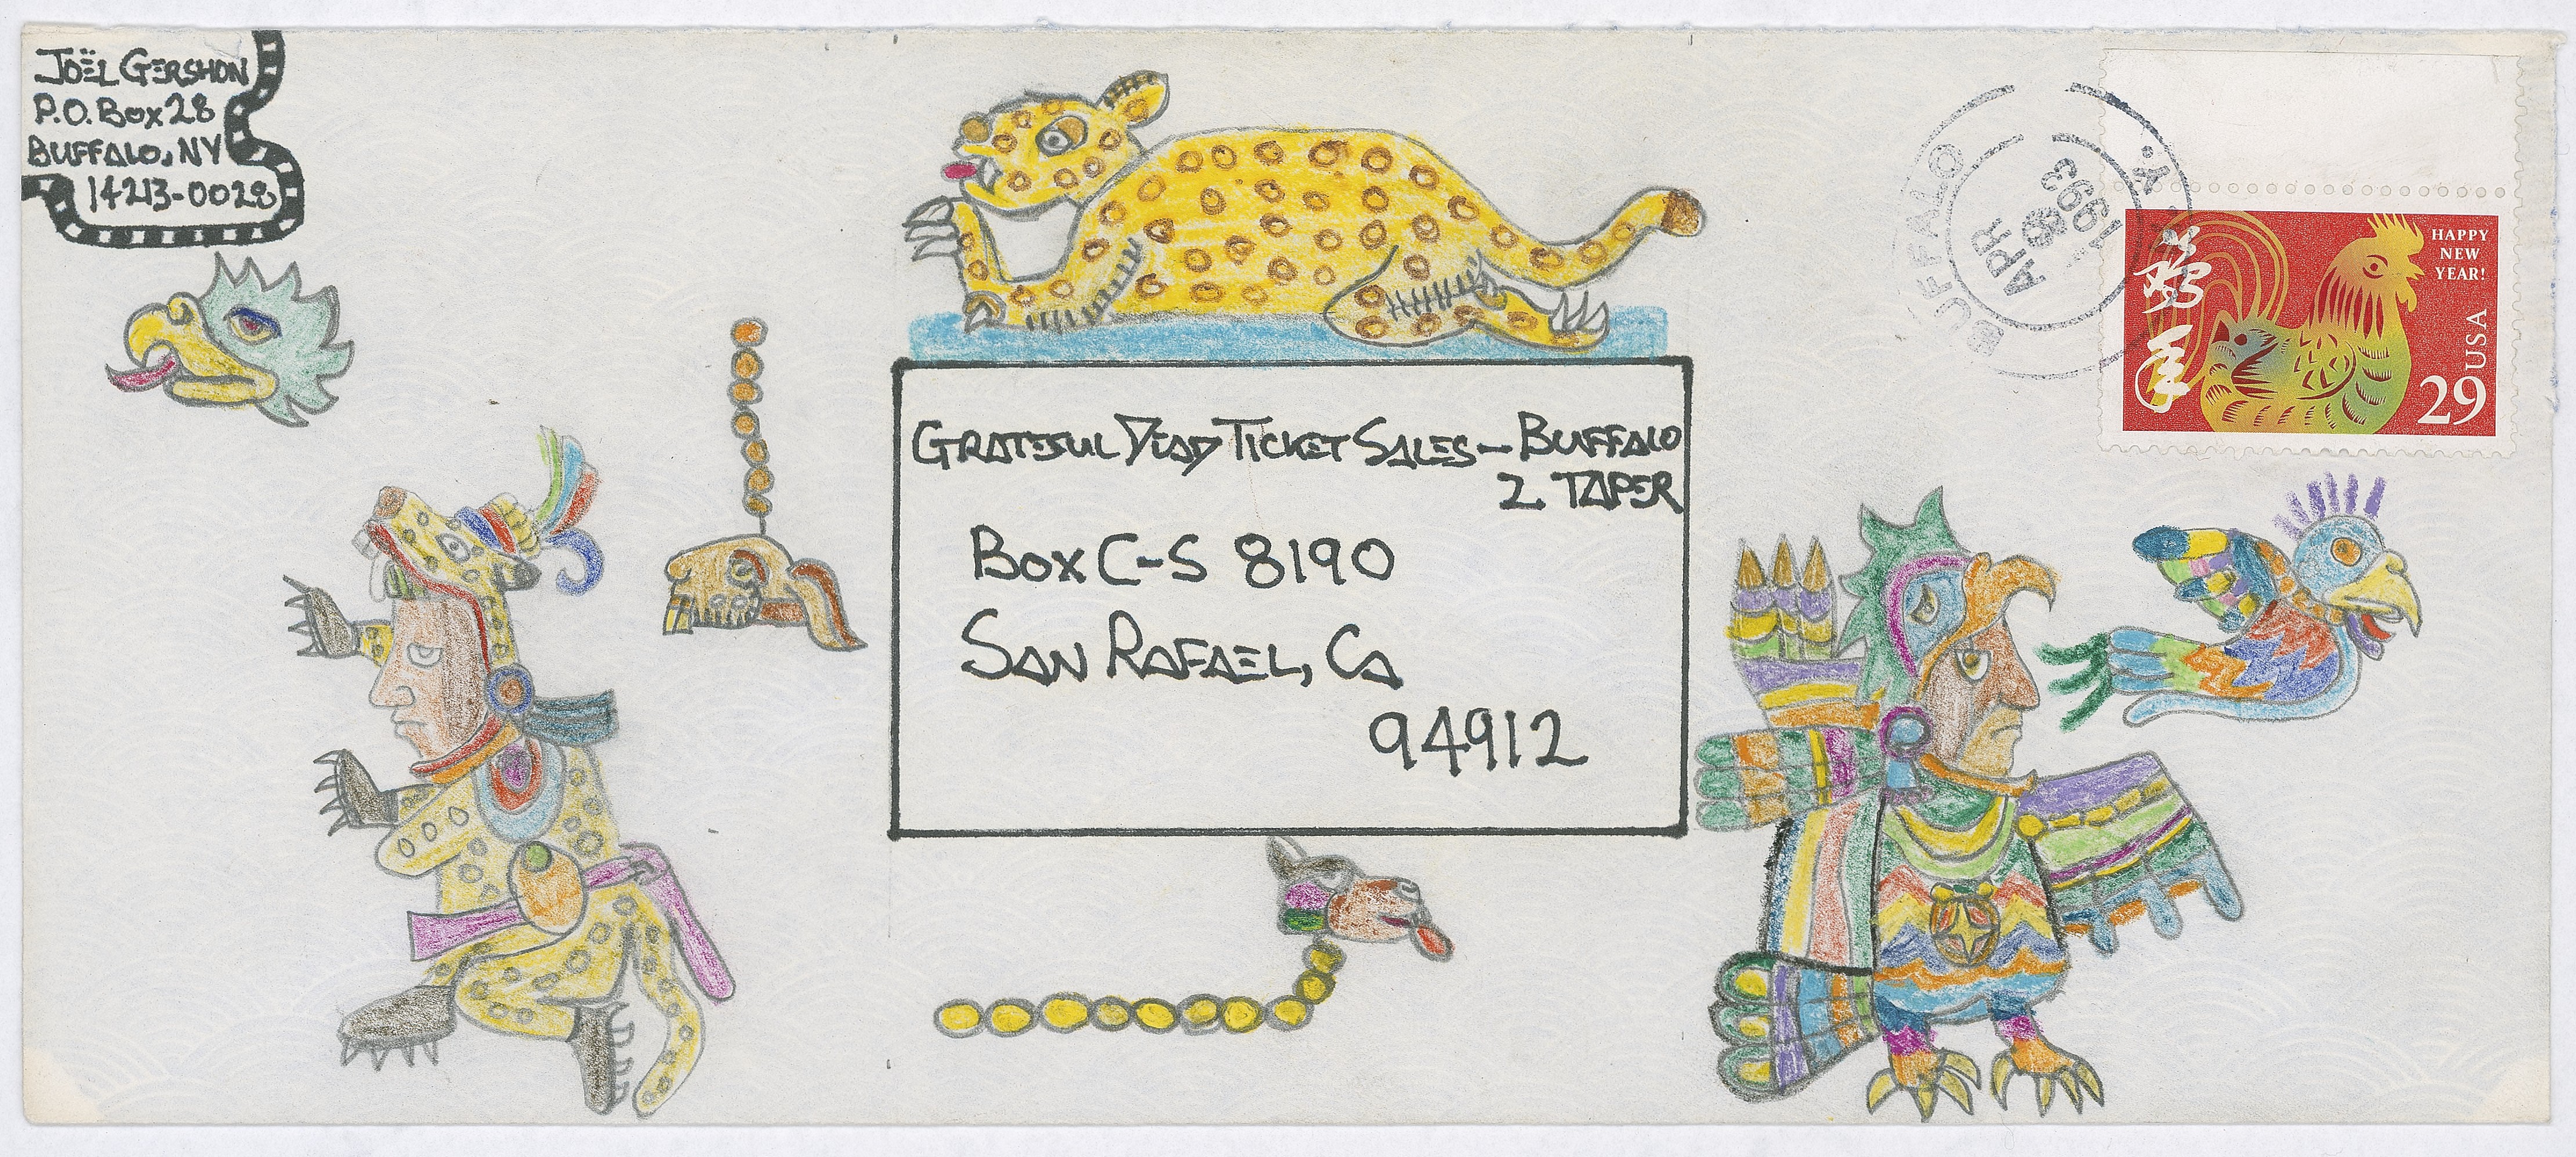 JOËL GERSHON
P.O. BOX 28
BUFFALO, NY
14213-0028
BUFFALO
N.Y.
APR
1993
HAPPY
NEW
YEAR!
USA
29
鷄年
GRATEFUL DEAD TICKET SALES - BUFFALO
2 TAPER
BOX C-S 8190
SAN RAFAEL, CA
94912